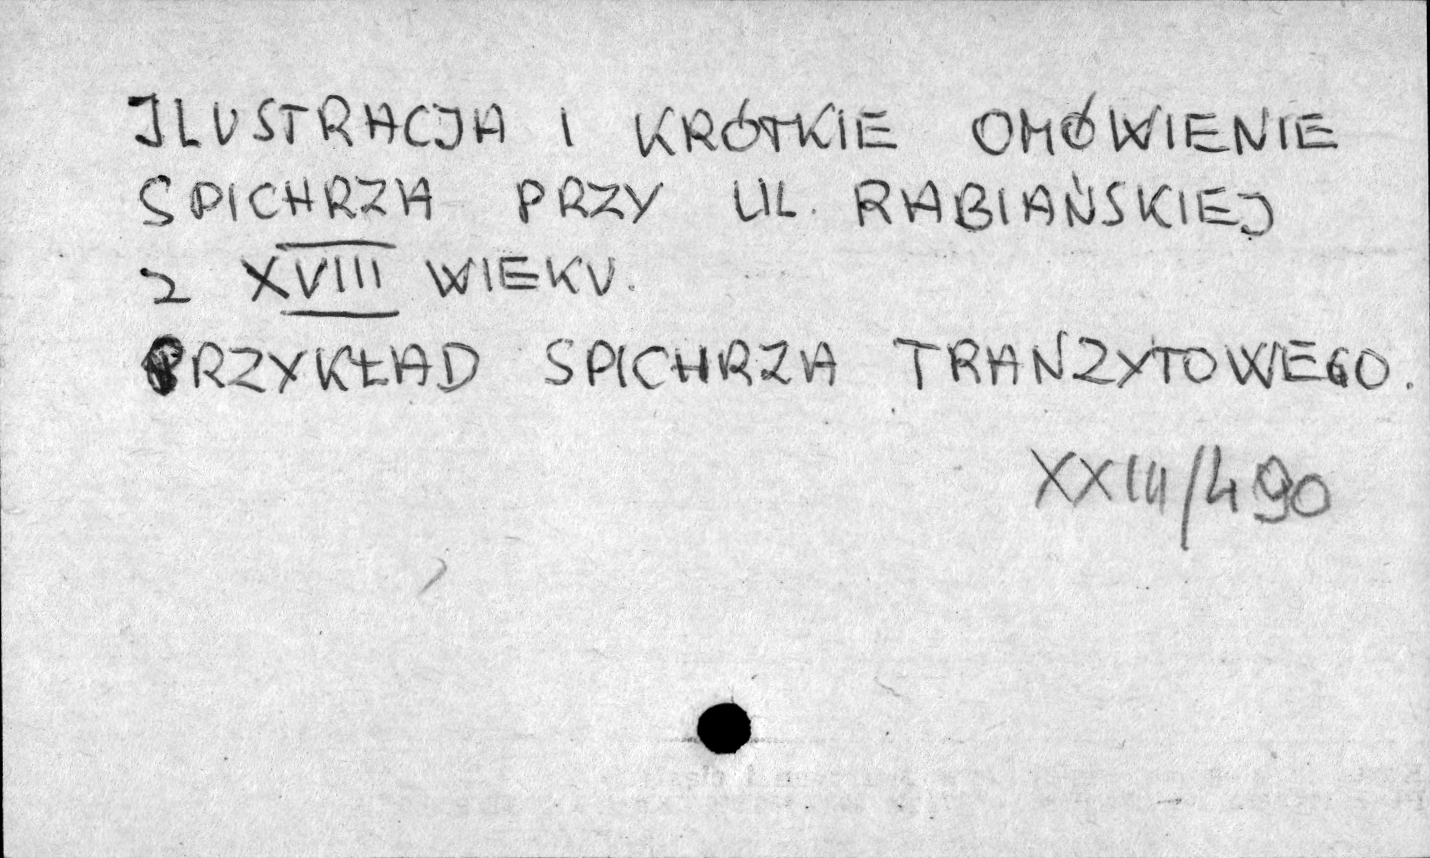 ILUSTRACJA I KRÓTKIE OMÓWIENIE
SPICHRZA PRZY UL. RABIAŃSKIEJ
Z XVIII WIEKU.
PRZYKŁAD SPICHRZA TRANZYTOWEGO.
XXIII/490